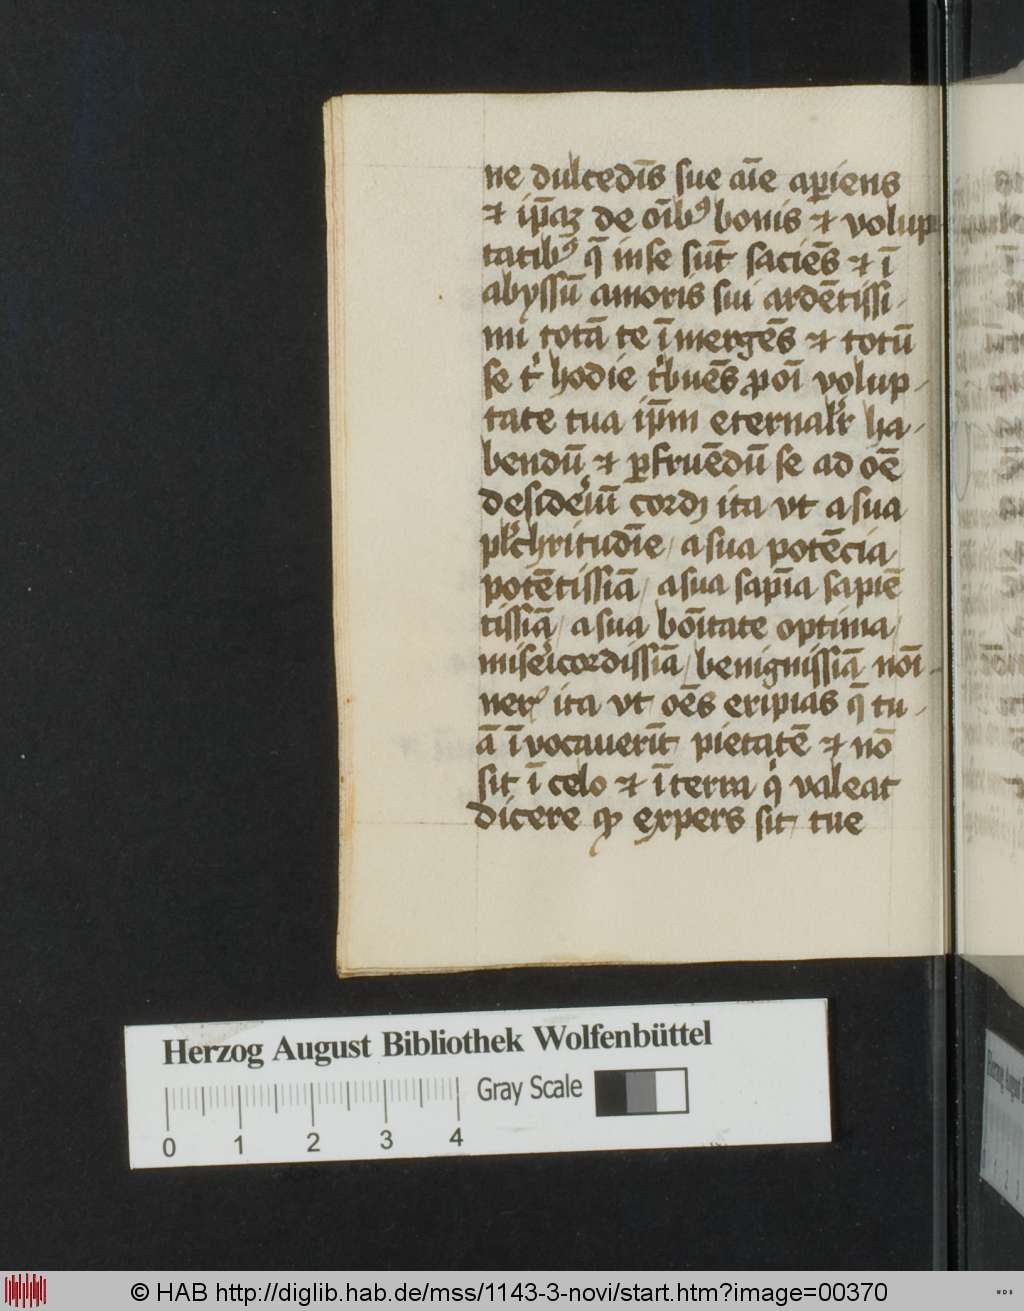 ne dulcedīs sue aīe aꝑiens
⁊ ip̄aꝫ de oīb⁹ bonis ⁊ volup
tatib⁹ q̄ in se sūt saciēs ⁊ ī
abyssū amoris sui ardētissi-
mi totā te īmergēs ⁊ totū
se tⁱ hodie tⁱbuēs ꝓ oī volup-
tate tua ip̄m eternalr̄ ha-
bendū ⁊ ꝑfruēdū se ad oē
desideⁱiū cordꝭ ita vt a sua
pl̄chritudīe / a sua potēcia
potētissīa / a sua sap̄ia sapiē
tissīa / a sua bōitate optima /
miseⁱicordissīa / benignissīa nōī-
ner⁾ ita vt oēs eripias q̄ tu-
ā īvocauerīt pietatē ⁊ nō
sit ī celo ⁊ ī terra qⁱ valeat
dicere ꝙ expers sit tue
Herzog August Bibliothek Wolfenbüttel
Gray Scale
0 1 2 3 4
© HAB http://diglib.hab.de/mss/1143-3-novi/start.htm?image=00370